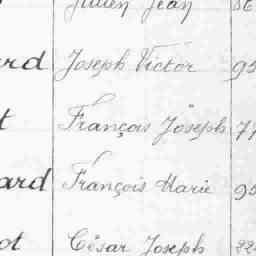 Julien Jean 86
ard Joseph Victor 95
t François Joseph 77
ard François Marie 95
ot César Joseph 22